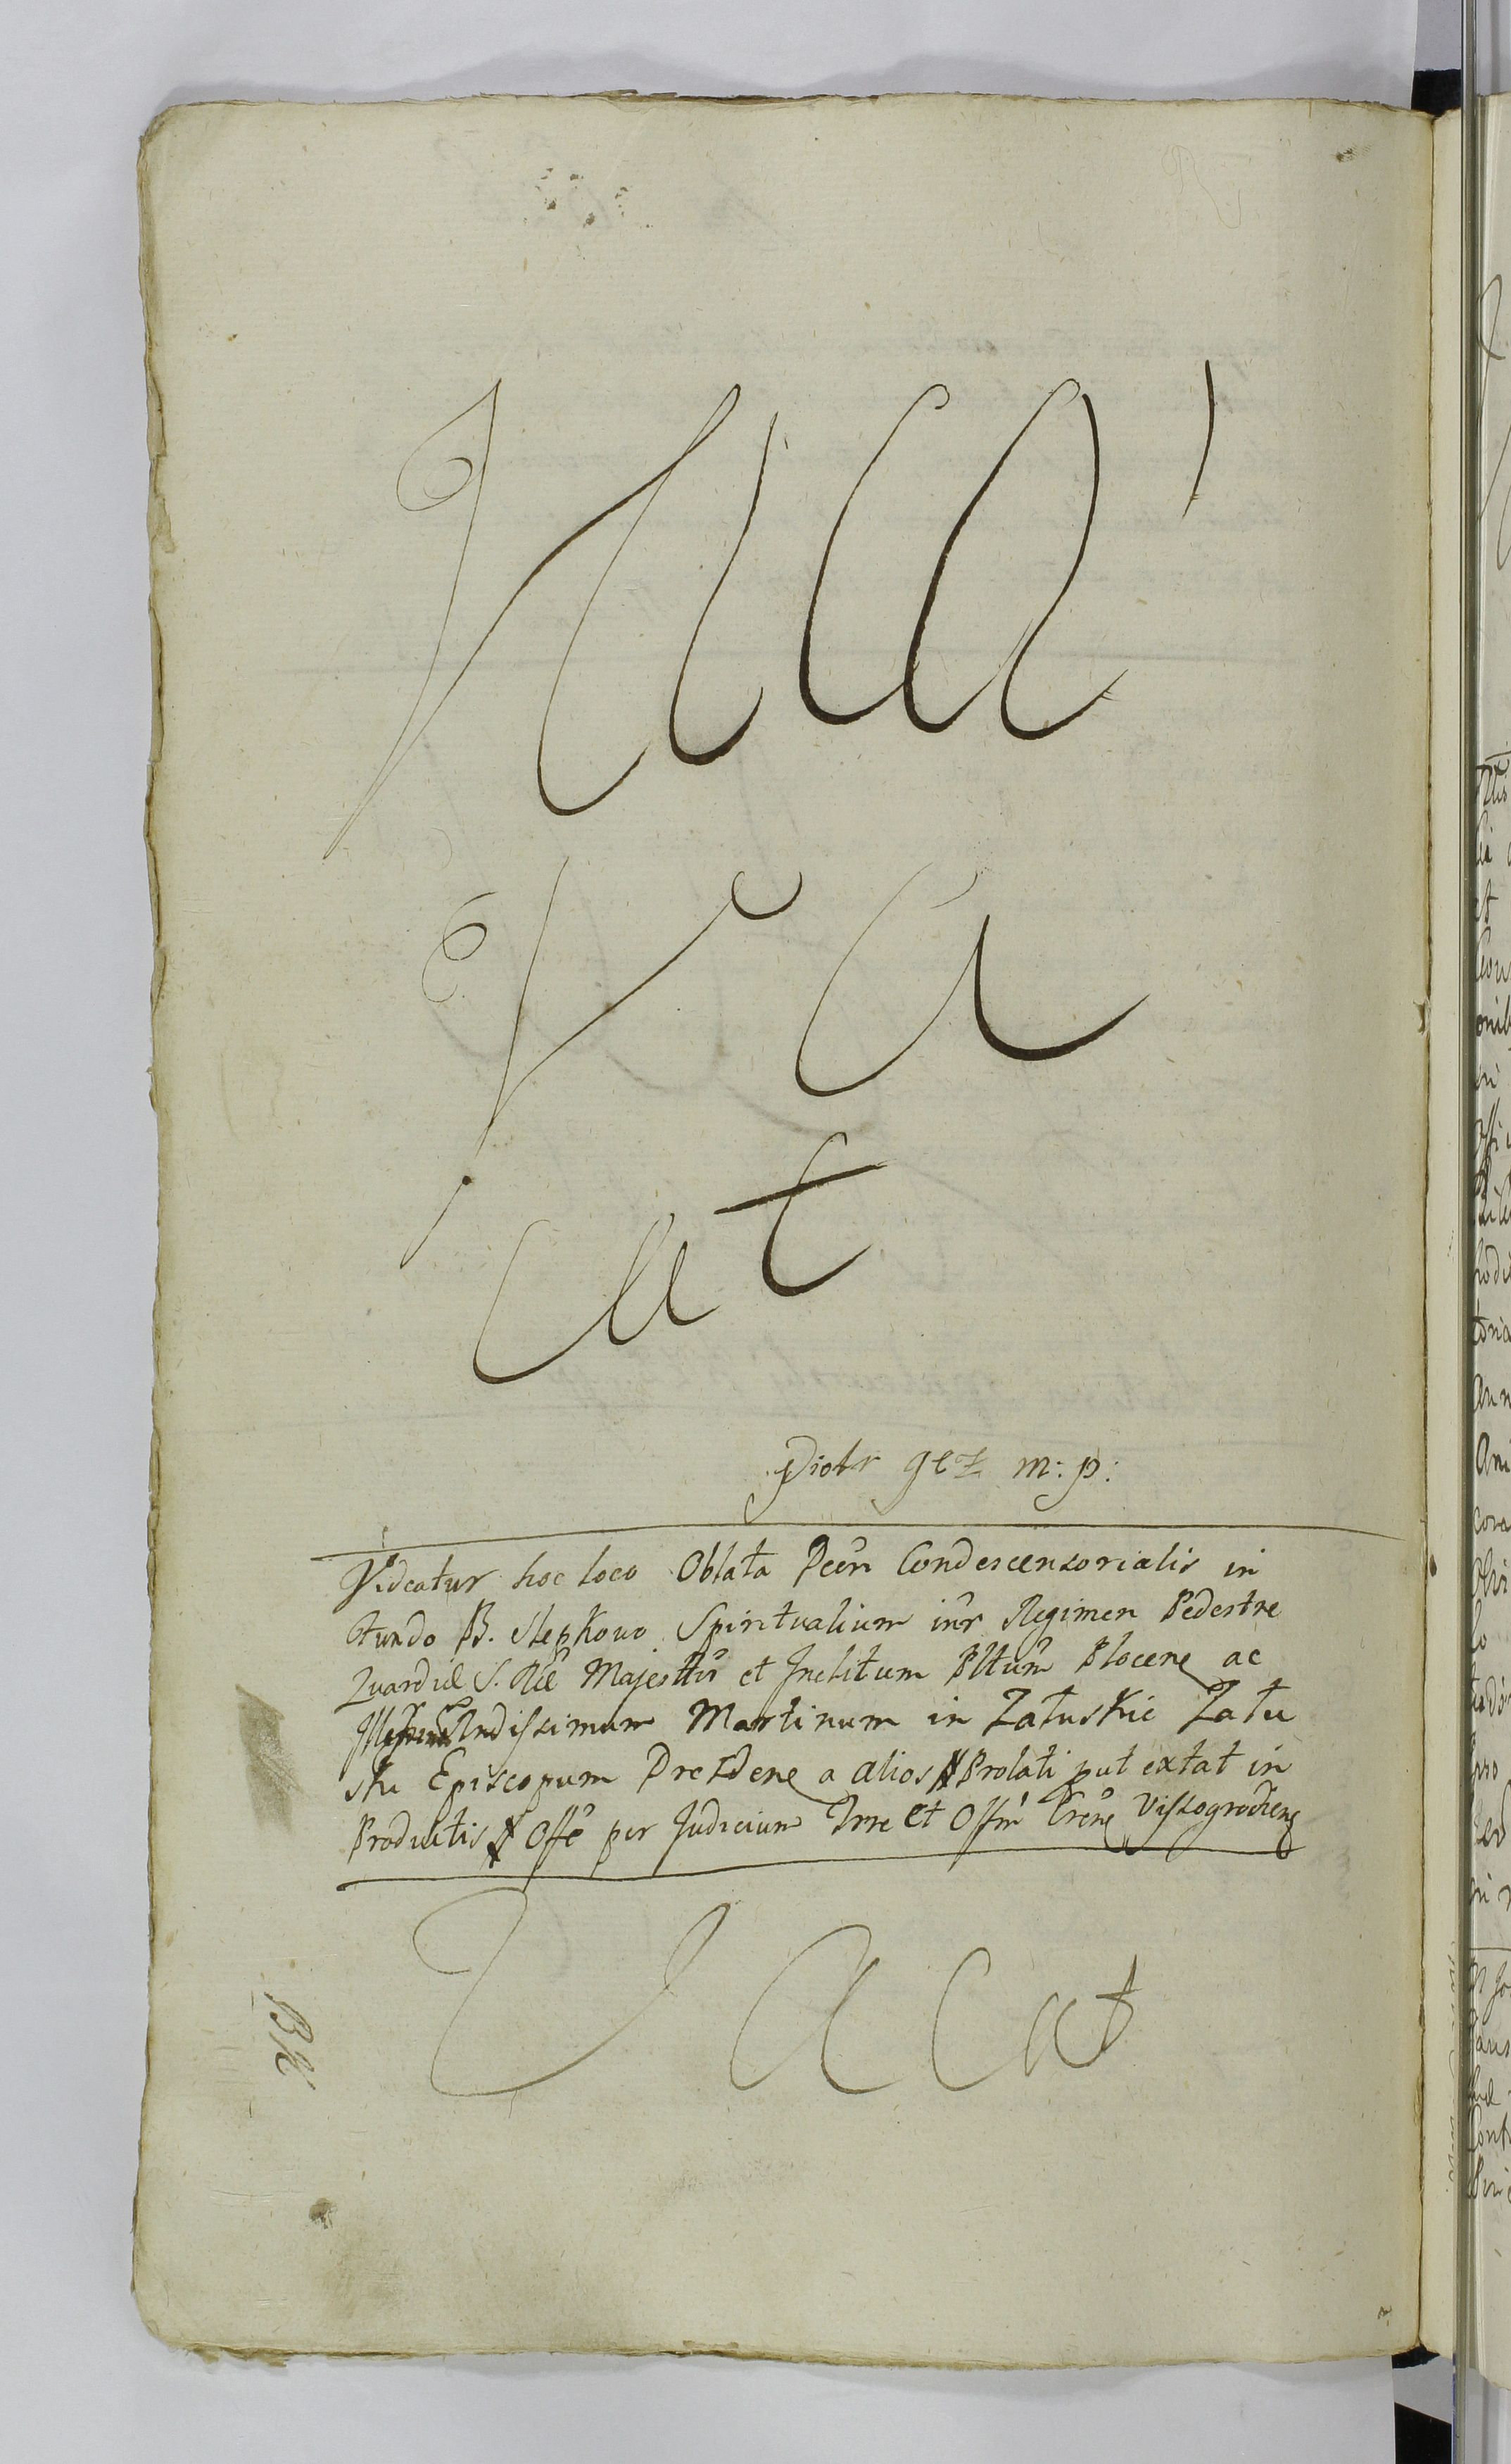 Va
cat
Piotr gez m: p:
Videatur hoc loco Oblata Decri Condescensorialis in
fundo B. Slepkowo Spiritualium inr Regimen Pedestre
Quardiae S. Rae Majestis et Inclitum Pltum Plocens ac
Rndissimum Martinum in Załuskie Zału
ski Episcopum Drezdens a alios Prolati put extat in
Productis Offo per Judicium Trre et Offm Crens Vissogrodiens
Vacat